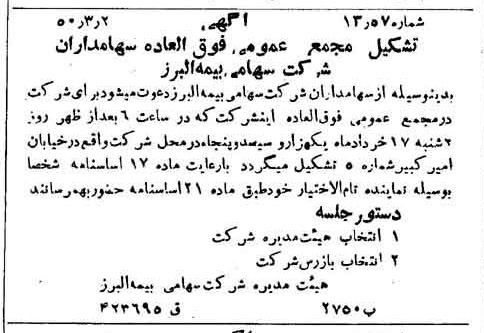 شماره ۱۳٫۵۷ آگهی ۵۰٫۳٫۲
تشکیل مجمع عمومی فوق العاده سهامداران
شرکت سهامی بیمه البرز
بدینوسیله از سهامداران شرکت سهامی بیمه البرز دعوت میشود برای شرکت
در مجمع عمومی فوق العاده اینشرکت که در ساعت ۶ بعد از ظهر روز
۲شنبه ۱۷ خرداد ماه یکهزار و سیصد و پنجاه در محل شرکت واقع در خیابان
امیر کبیر شماره ۵ تشکیل میگردد با رعایت ماده ۱۷ اساسنامه شخصا
بوسیله نماینده تام الاختیار خود طبق ماده ۲۱ اساسنامه حضور بهمرسانند
دستور جلسه
۱ انتخاب هیئت مدیره شرکت
۲ انتخاب بازرس شرکت
هیئت مدیره شرکت سهامی بیمه البرز
ب ۲۷۵۰ ق ۴۲۳۶۹۵